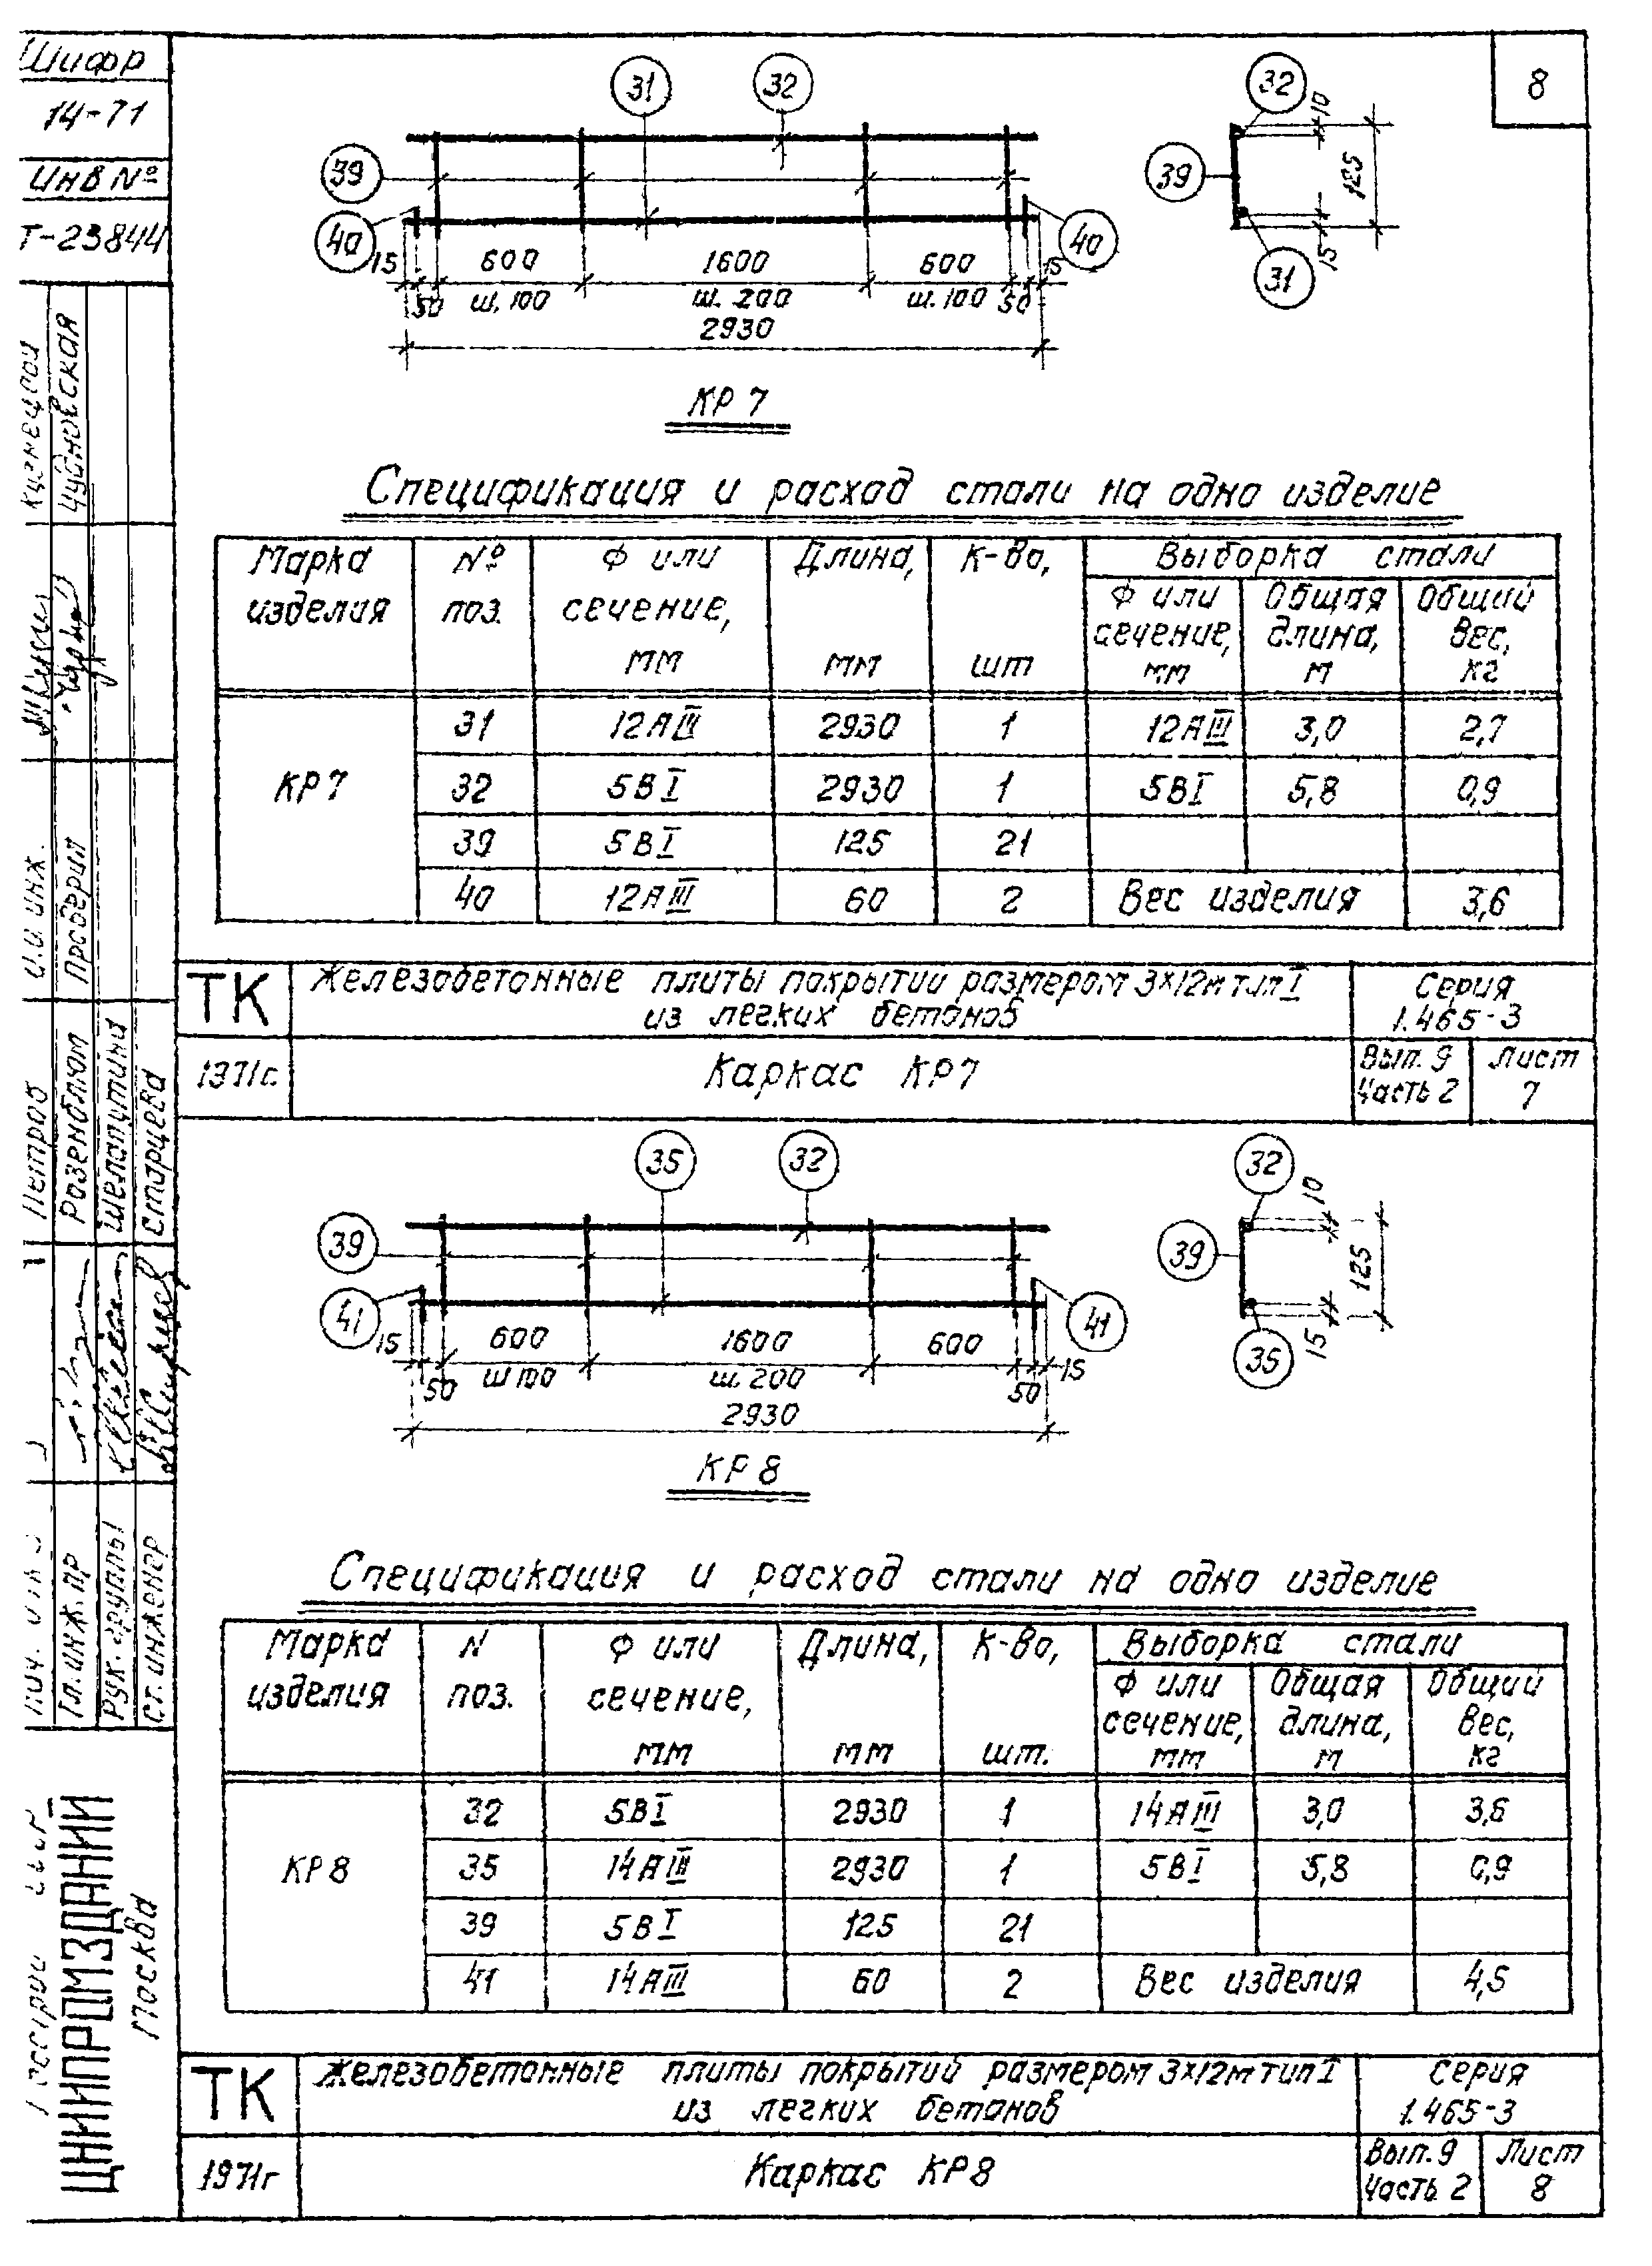 Шифр
14-71
Инв №
Т-23844
8
31
32
39
40
40
15
50
600
ш. 100
1600
ш. 200
600
ш. 100
50
15
2930
32
10
39
125
15
31
КР 7
Спецификация и расход стали на одно изделие
Марка изделия
№ поз.
Ф или сечение, мм
Длина, мм
К-во, шт
Выборка стали
Ф или сечение, мм
Общая длина, м
Общий вес, кг
КР7
31 12АIII 2930 1 12АIII 3,0 2,7
32 5ВI 2930 1 5ВI 5,8 0,9
39 5ВI 125 21
40 12АIII 60 2 Вес изделия 3,6
ТК
Железобетонные плиты покрытий размером 3х12м тип I
из легких бетонов
Серия
1.465-3
1971г.
Каркас КР7
Вып. 9
Часть 2
Лист
7
35
32
39
41
41
15
50
600
ш 100
1600
ш. 200
600
50
15
2930
32
10
39
125
15
35
КР 8
Спецификация и расход стали на одно изделие
Марка изделия
N поз.
Ф или сечение, мм
Длина, мм
К-во, шт.
Выборка стали
Ф или сечение, мм
Общая длина, м
Общий вес, кг
КР8
32 5ВI 2930 1 14АIII 3,0 3,6
35 14АIII 2930 1 5ВI 5,8 0,9
39 5ВI 125 21
41 14АIII 60 2 Вес изделия 4,5
ТК
Железобетонные плиты покрытий размером 3х12м тип I
из легких бетонов
Серия
1.465-3
1971г
Каркас КР8
Вып. 9
Часть 2
Лист
8
Проверил
Гл. инж. пр
Розенблюм
Рук. группы
Шелапутина
Ст. инженер
Старцева
ЦНИИПРОМЗДАНИЙ
Москва